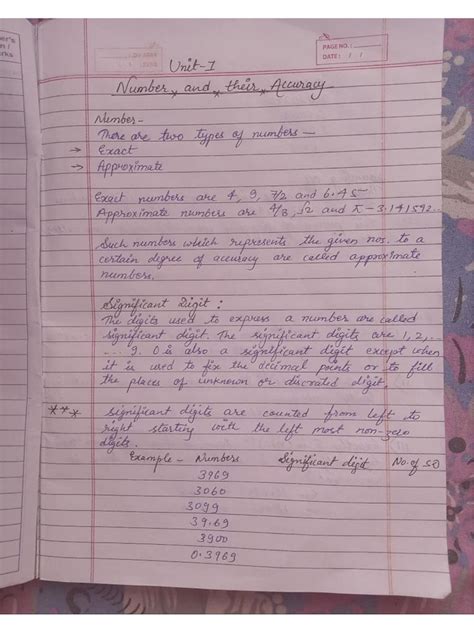 PAGE NO.:
DATE: / /
Unit-I
Number and their Accuracy
Number-
There are two types of numbers —
→ Exact
→ Approximate
Exact numbers are 4, 9, 7/2 and 6.45
Approximate numbers are 4/3, √2 and π - 3.141592...
Such numbers which represents the given nos. to a
certain degree of accuracy are called approximate
numbers.
Significant Digit :
The digits used to express a number are called
significant digit. The significant digits are 1, 2,..
.... 9. 0 is also a significant digit except when
it is used to fix the decimal points or to fill
the places of unknown or discrated digit.
*** Significant digits are counted from left to
right starting with the left most non-zero
digits.
Example - Numbers Significant digit No. of SD
3969
3060
3099
39.69
3900
0.3969